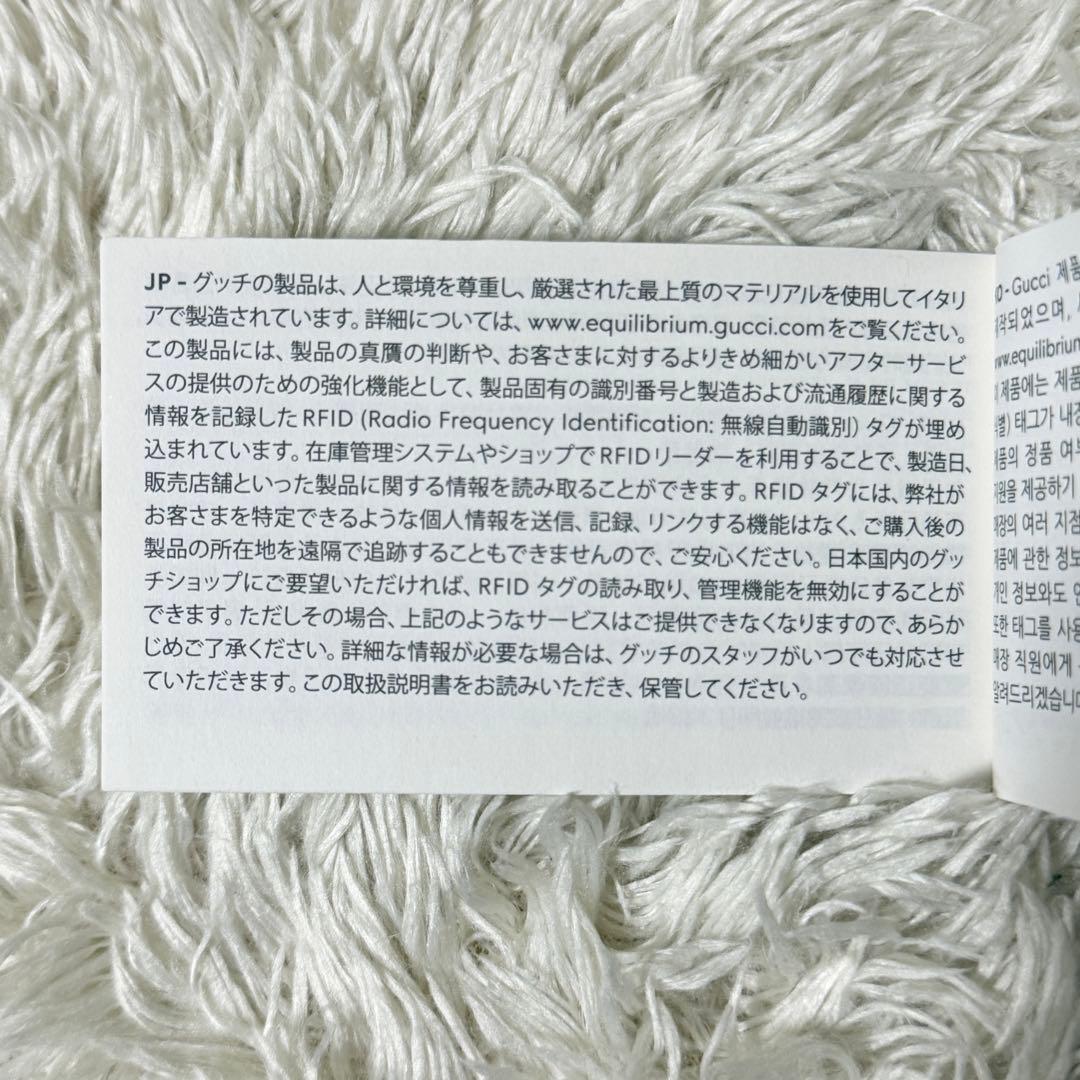 JP - グッチの製品は、人と環境を尊重し、厳選された最上質のマテリアルを使用してイタリ
アで製造されています。詳細については、www.equilibrium.gucci.comをご覧ください。
この製品には、製品の真贋の判断や、お客さまに対するよりきめ細かいアフターサービ
スの提供のための強化機能として、製品固有の識別番号と製造および流通履歴に関する
情報を記録したRFID (Radio Frequency Identification: 無線自動識別) タグが埋め
込まれています。在庫管理システムやショップでRFIDリーダーを利用することで、製造日、
販売店舗といった製品に関する情報を読み取ることができます。RFID タグには、弊社が
お客さまを特定できるような個人情報を送信、記録、リンクする機能はなく、ご購入後の
製品の所在地を遠隔で追跡することもできませんので、ご安心ください。日本国内のグッ
チショップにご要望いただければ、RFID タグの読み取り、管理機能を無効にすることが
できます。ただしその場合、上記のようなサービスはご提供できなくなりますので、あらか
じめご了承ください。詳細な情報が必要な場合は、グッチのスタッフがいつでも対応させ
ていただきます。この取扱説明書をお読みいただき、保管してください。
- Gucci 제품
되었으며,
www.equilibrium
제품에는 제품
태그가 내장
정품 여부
제공하기
여러 지점
관한 정보
정보와도
또한 태그를 사용
직원에게
알려드리겠습니다